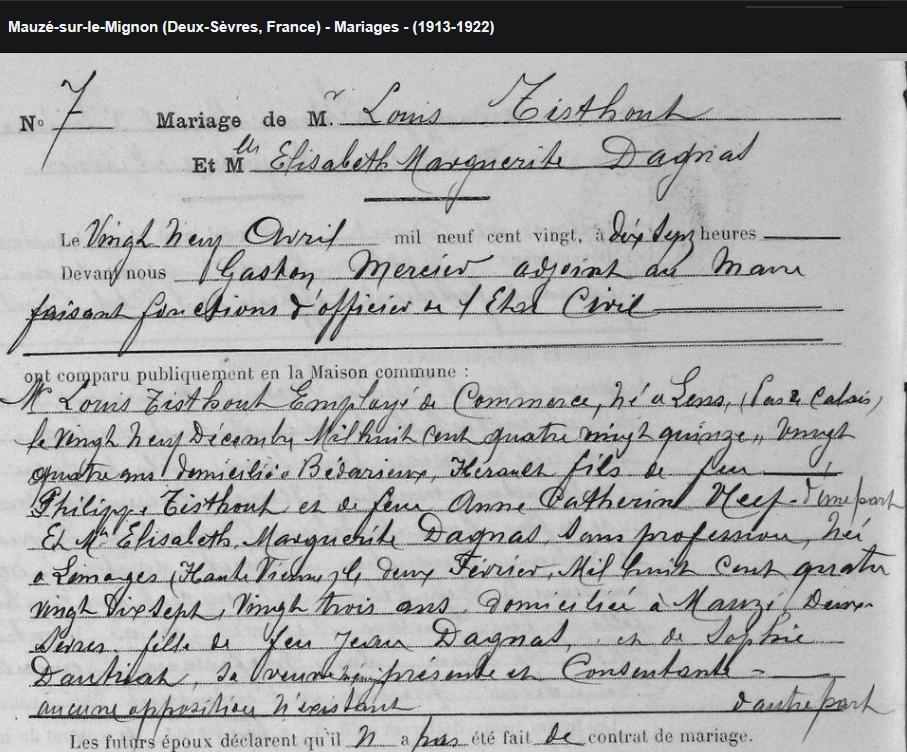 Mauzé-sur-le-Mignon (Deux-Sèvres, France) - Mariages - (1913-1922)
N° 7 Mariage de M.r Louis Tisthout
Et Mlle Elisabeth Marguerite Dagnas
Le Vingt Neuf Avril mil neuf cent vingt, à dix sept heures
Devant nous Gaston Mercier adjoint au Maire
faisant fonctions d'officier de l'Etat Civil
ont comparu publiquement en la Maison commune :
Mr Louis Tisthout Employé de Commerce, Né à Lens, (Pas de Calais)
le Vingt Neuf Décembre Mil huit cent quatre vingt quinze, Vingt
quatre ans domicilié à Bédarieux, Hérault fils de feu
Philippe Tisthout et de feue Anne Catherine d'une part
Et Mlle Elisabeth Marguerite Dagnas, sans profession, Née
à Limoges, (Haute Vienne) le deux Février, Mil huit cent quatre
vingt dix sept, Vingt trois ans, domiciliée à Mauzé, Deux-
Sèvres, fille de feu Jean Dagnas, et de Sophie
Dautriat, sa veuve présente et Consentante -
aucune opposition n'existant d'autre part
Les futurs époux déclarent qu'il n a pas été fait de contrat de mariage.